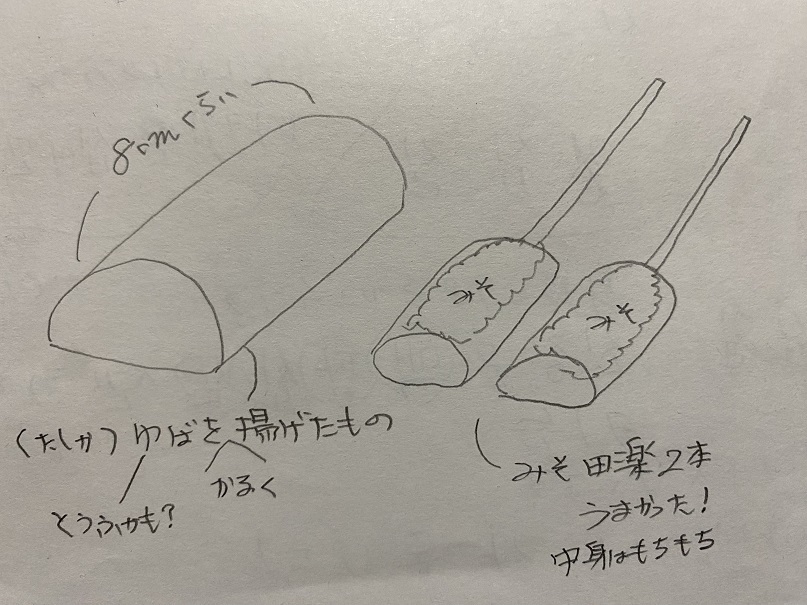 8cmくらい
(たしか)ゆばを揚げたもの
かるく
とうふかも?
みそ
みそ
みそ田楽2本
うまかった!
中身はもちもち